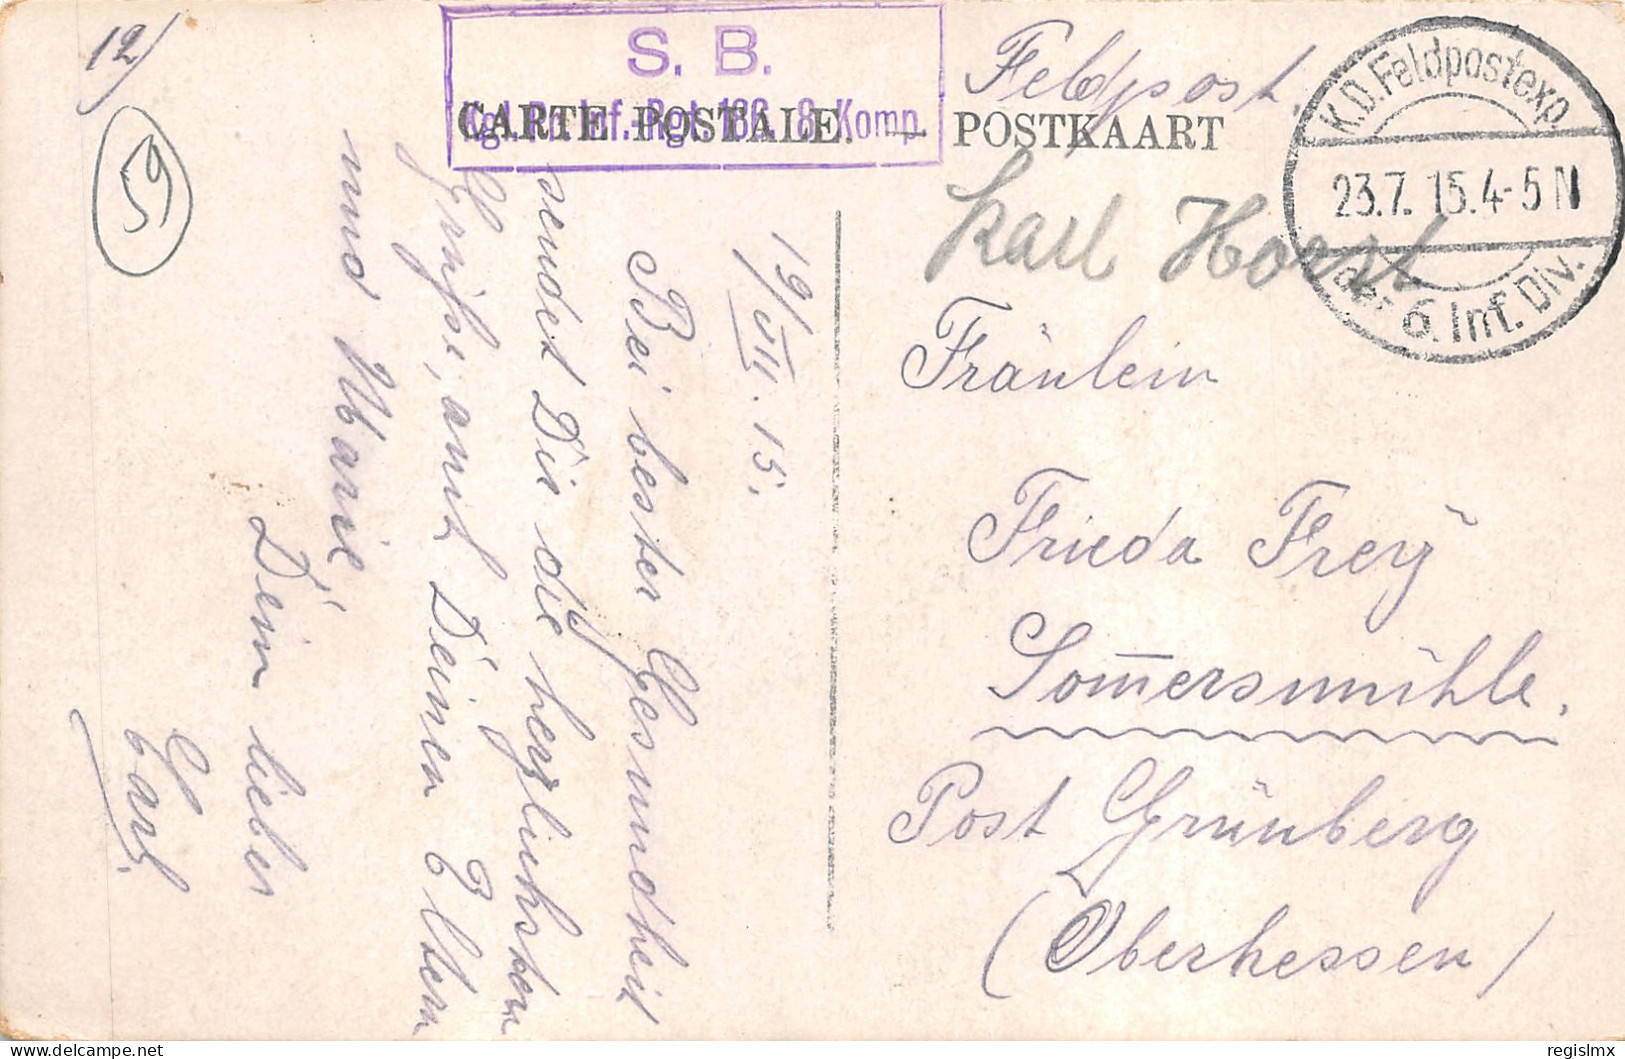 12/
59
S. B.
Kgl. Pr. Inf.-Rgt. 186. 8. Komp.
CARTE POSTALE. — POSTKAART
Feldpost.
K.D. Feldpostexp.
23.7.15.4-5N
der 6. Inf. Div.
Karl Horst
Fräulein
Frieda Frey
Som̅ersmühle.
Post Grünberg
(Oberhessen)
19/VII. 15.
Bei bester Gesundheit
sendet Dir die herzlichsten
Grüße, auch Deinen Eltern
und Marie
Dein lieber
Carl.
regislmx